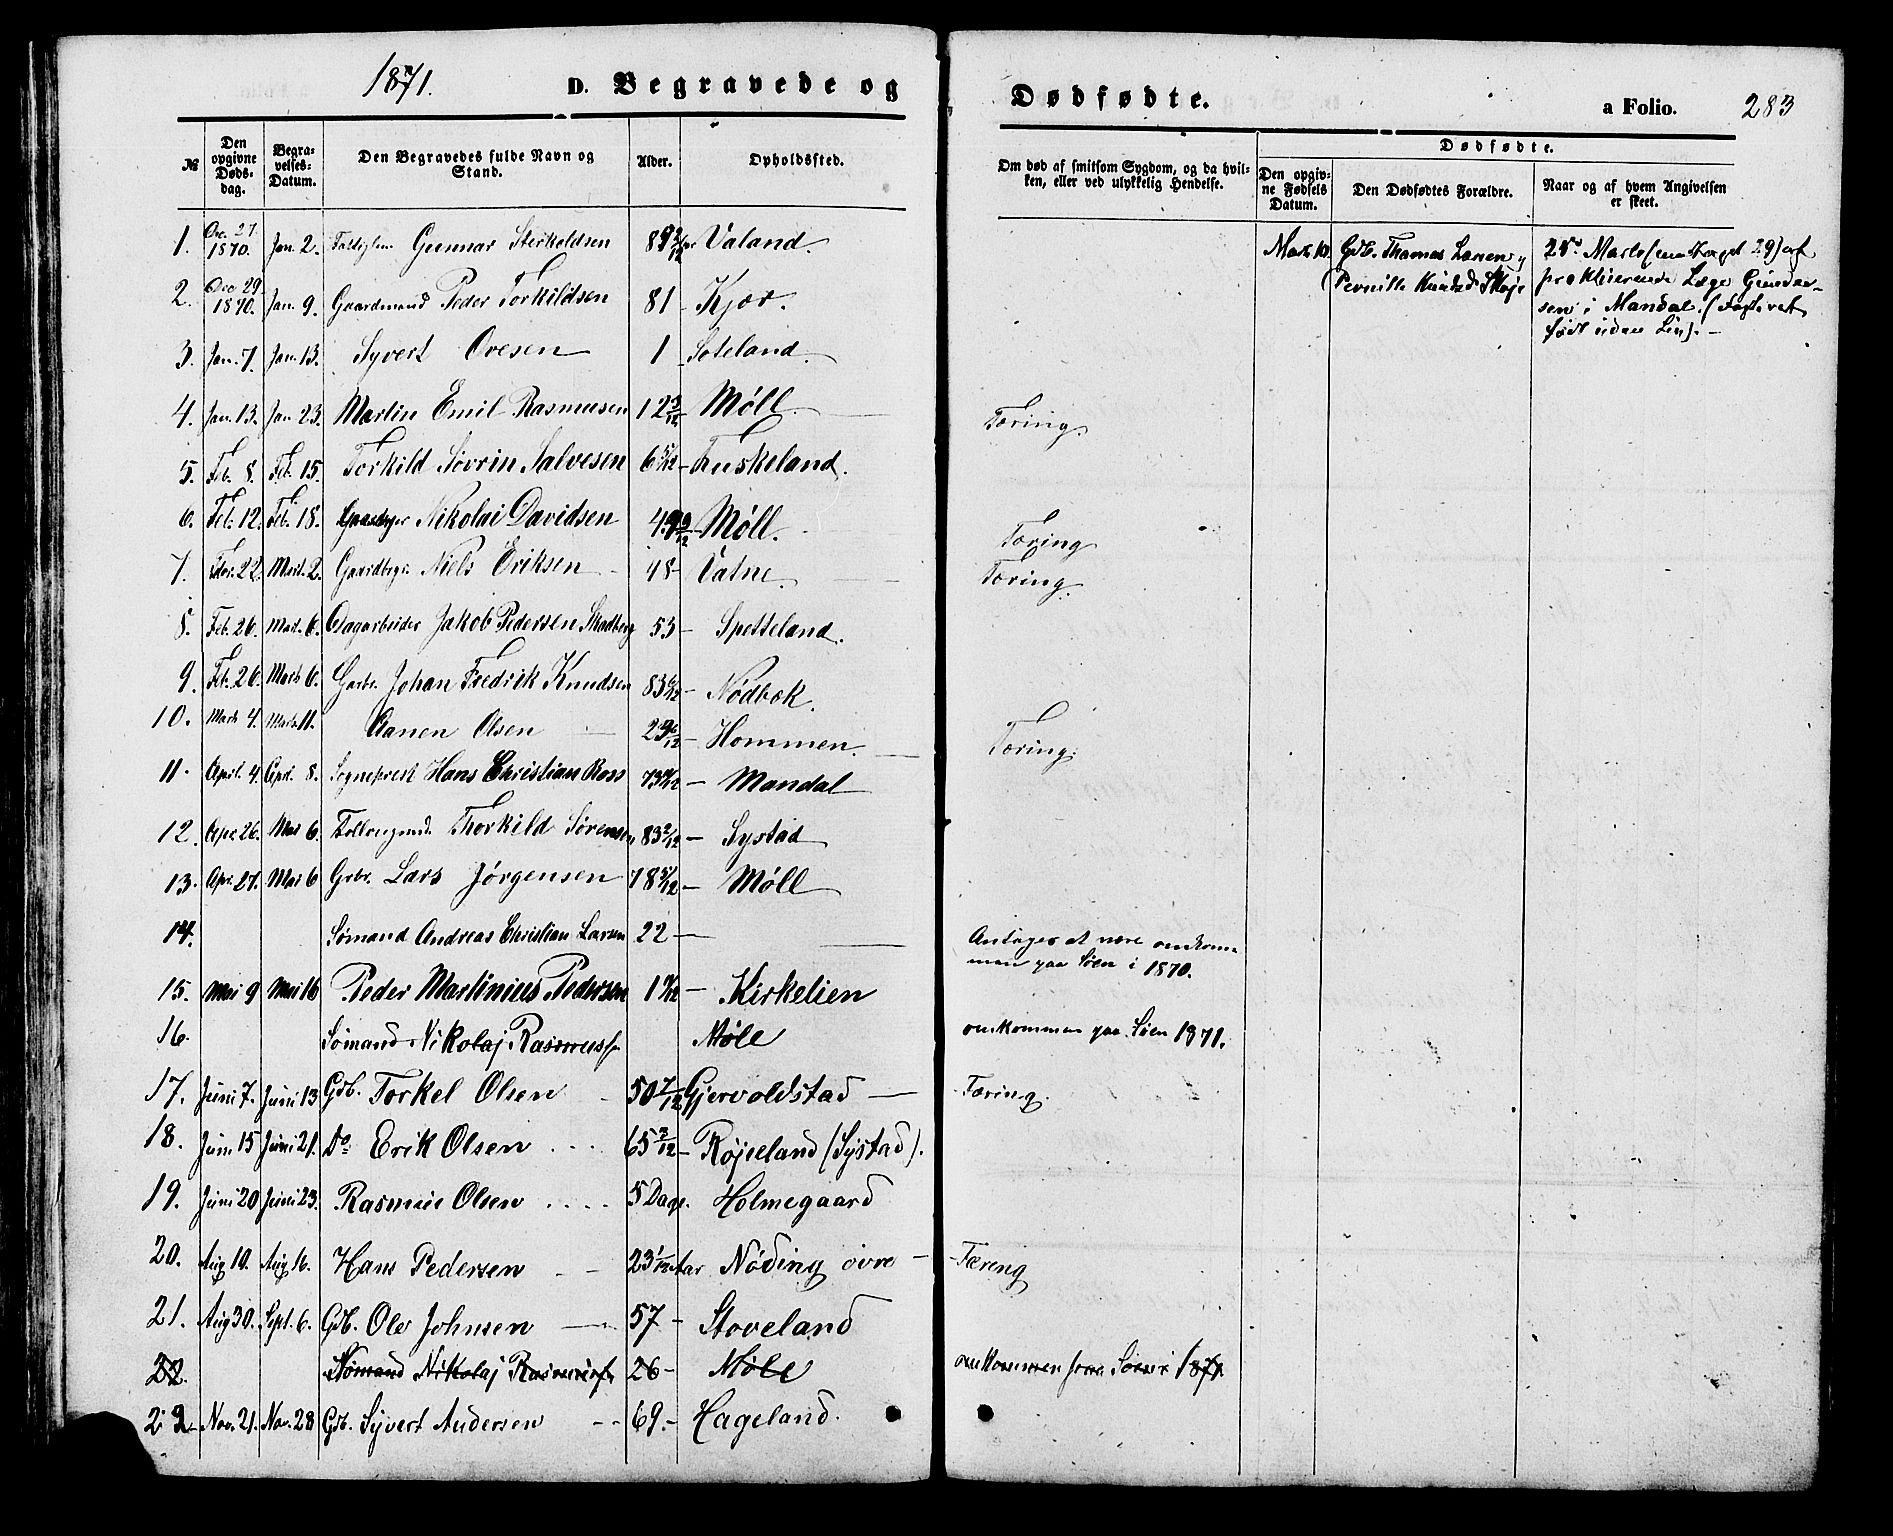 1871.
D. Begravede og
Dødfødte.
a Folio.
283
№
Den opgivne Døds-dag.
Begra-velses-Datum.
Den Begravedes fulde Navn og Stand.
Alder.
Opholdsfted.
Om død af smitsom Sygdom, og da hvil-ken, eller ved ulykkelig Hendelse.
Dødfødte.
Den opgiv-ne Fødsels Datum.
Den Dødfødtes Forældre.
Naar og af hvem Angivelsen er skeet.
1. Dec. 27. 1870. Jan. 2. Gunnar Sterkoldsen 89 2/12 Valand.
Gdb. Thomas Larsen og
Pernille
25d Marts af
prakticerende Læge Gunder-
sen i Mandal. (Fosteret
født uden Liv). –
2. Dec 29. 1870. Jan. 9. Gaardmand Peder Torkildsen 81 – Kjær.
3. Jan. 7. Jan. 13. Syvert Ovesen 1 – Soteland.
4. Jan. 13. Jan. 23. Martin Emil Rasmussen 12 3/12 – Møll. Tæring.
5. Feb. 8. Feb. 15. Torkild Sövrin Salvesen 6 5/12 – Fuskeland.
6. Feb. 12. Feb. 18. Nikolai Davidsen 49 9/12 – Møll. Tæring
7. Feb. 22. Mart. 2. Gaardbrgr. Niels Eriksen 48 – Vatne. Tæring.
8. Feb. 26. Mart. 6. Dagarbeider Jakob Pedersen Skadberg 53 – Spetteland.
9. Feb. 26. Marts 6. Garbr. Johan Fredrik Knudsen 83 6/12 – Nödbæk.
10. Marts 4. Marts 11. Aanen Olsen Hommen. Tæring.
11. April. 4. April. 8. Sogneprest Hans Christian Ross – Mandal
12. Apr. 26. Mai 6. Thorkild Sørensen 83 2/12 – Systad
13. Apr. 27. Mai 6 Grbr. Lars Jørgensen – Møll
14. Sømand Andreas Christian Larsen 22 – Antages at være omkom-
men paa Søen i 1870.
15. Mai 9 Mai 16 Peder Martinius Pedersen – Kirkelien
16. Sømand Nikolaj Rasmuss. Møle omkommen paa Søen 1871.
17. Juni 7. Juni 13 Gdb. Torkel Olsen 50 7/12 Gjervoldstad – Tæring.
18. Juni 15 Juni 21. Do Erik Olsen . . . 65 3/12 – Røjseland (Systad).
19. Juni 20 Juni 23. Rasmus Olsen . . . . 5 Dage. Holmegaard
20. Aug 10. Aug 16. Hans Pedersen – 23 1/12 Aar Nøding övre – Tæring
21. Aug 30. Sept. 6. Gdb. Ole Johnsen – 57 – Stoveland
22. Sømand Nikolaj Rasmuss. 26 – Møle omkommen paa Søen i 1871
22 Nov. 21. Nov. 28 Gdb. Syvert Andersen – 69. – Hageland.